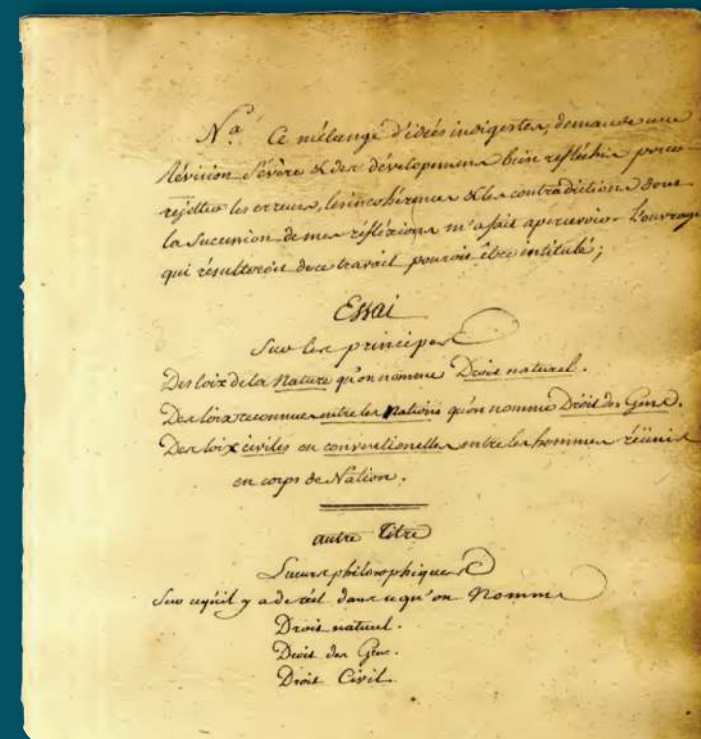 Nª Ce mélange d'idées indigestes, demande une
Révision sévère & des dévelopemens bien refléchis pour
rejetter les erreurs, les incohérences & les contradictions dont
la succession de mes réfléxions m'a fait apercevoir. L'ouvrage
qui résulteroit de ce travail pouroit être intitulé;
Essai
Sur les principes
Des loix de la Nature qu'on nomme Droit naturel.
Des loix reconnues entre les Nations qu'on nomme Droit des Gens.
Des loix civiles ou conventionelles entre les hommes réünis
en corps de Nation.
autre Titre
Lueurs philosophiques
Sur ce qu'il y a de réel dans ce qu'on Nomme
Droit naturel.
Droit des Gens.
Droit Civil.